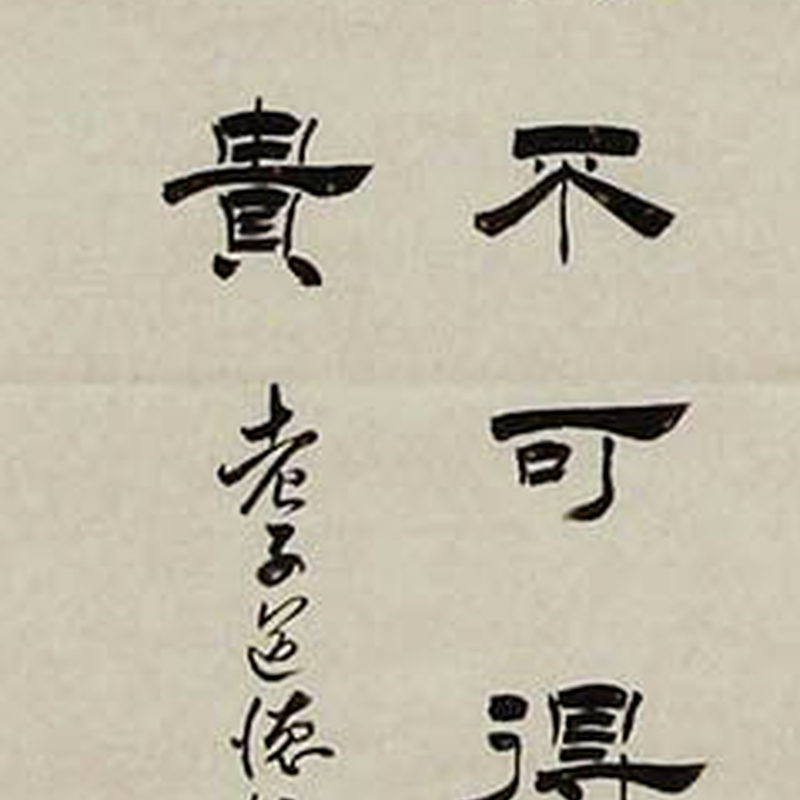 不可得
貴
老子道德